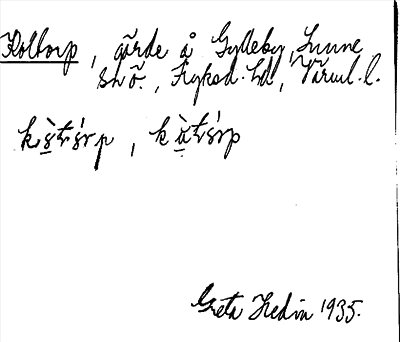 Koltorp, gärde å Gylleby, Sunne
sn ö., Fryksd. hd, Värml. l.
Greta Hedin 1935.